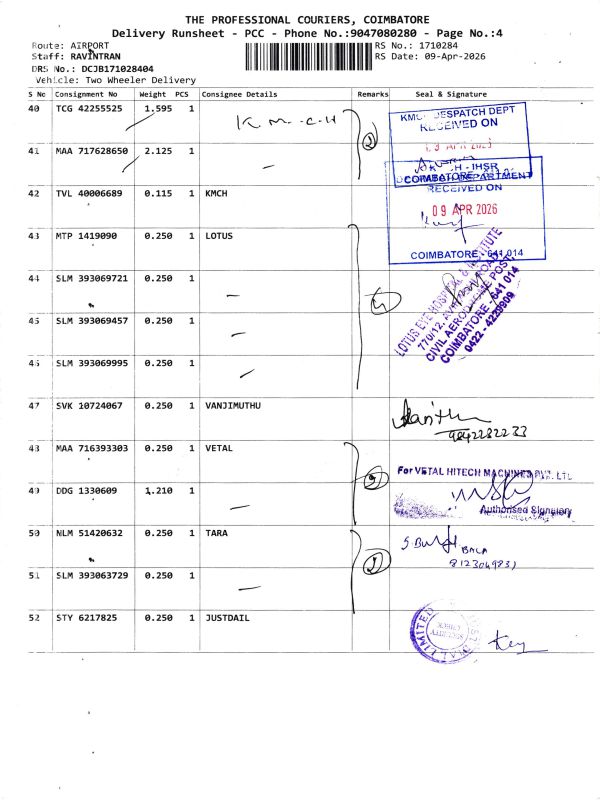 THE PROFESSIONAL COURIERS, COIMBATORE
Delivery Runsheet - PCC - Phone No.:9047080280 - Page No.:4
Route: AIRPORT
RS No.: 1710284
Staff: RAVINTRAN
RS Date: 09-Apr-2026
DRS No.: DCJB171028404
Vehicle: Two Wheeler Delivery
S No Consignment No Weight PCS Consignee Details Remarks Seal & Signature
40 TCG 42255525 1.595 1 K.M.C.H
KMCH DESPATCH DEPT
RECEIVED ON
41 MAA 717628650 2.125 1 —
COIMBATORE
42 TVL 40006689 0.115 1 KMCH
RECEIVED ON
09 APR 2026
COIMBATORE - 641 014
43 MTP 1419090 0.250 1 LOTUS
44 SLM 393069721 0.250 1 —
LOTUS EYE HOSPITAL & INSTITUTE
770/12, AVINASHI ROAD,
CIVIL AERODROME POST,
COIMBATORE - 641 014
0422 - 4229909
45 SLM 393069457 0.250 1 —
46 SLM 393069995 0.250 1 —
47 SVK 10724067 0.250 1 VANJIMUTHU
9842282233
48 MAA 716393303 0.250 1 VETAL
For VETAL HITECH MACHINES PVT. LTD
49 DDG 1330609 1.210 1 —
Authorised Signatory
50 NLM 51420632 0.250 1 TARA
BALA
8123049831
51 SLM 393063729 0.250 1 —
52 STY 6217825 0.250 1 JUSTDAIL
SECURITY
CHECK
DIAL LIMITED